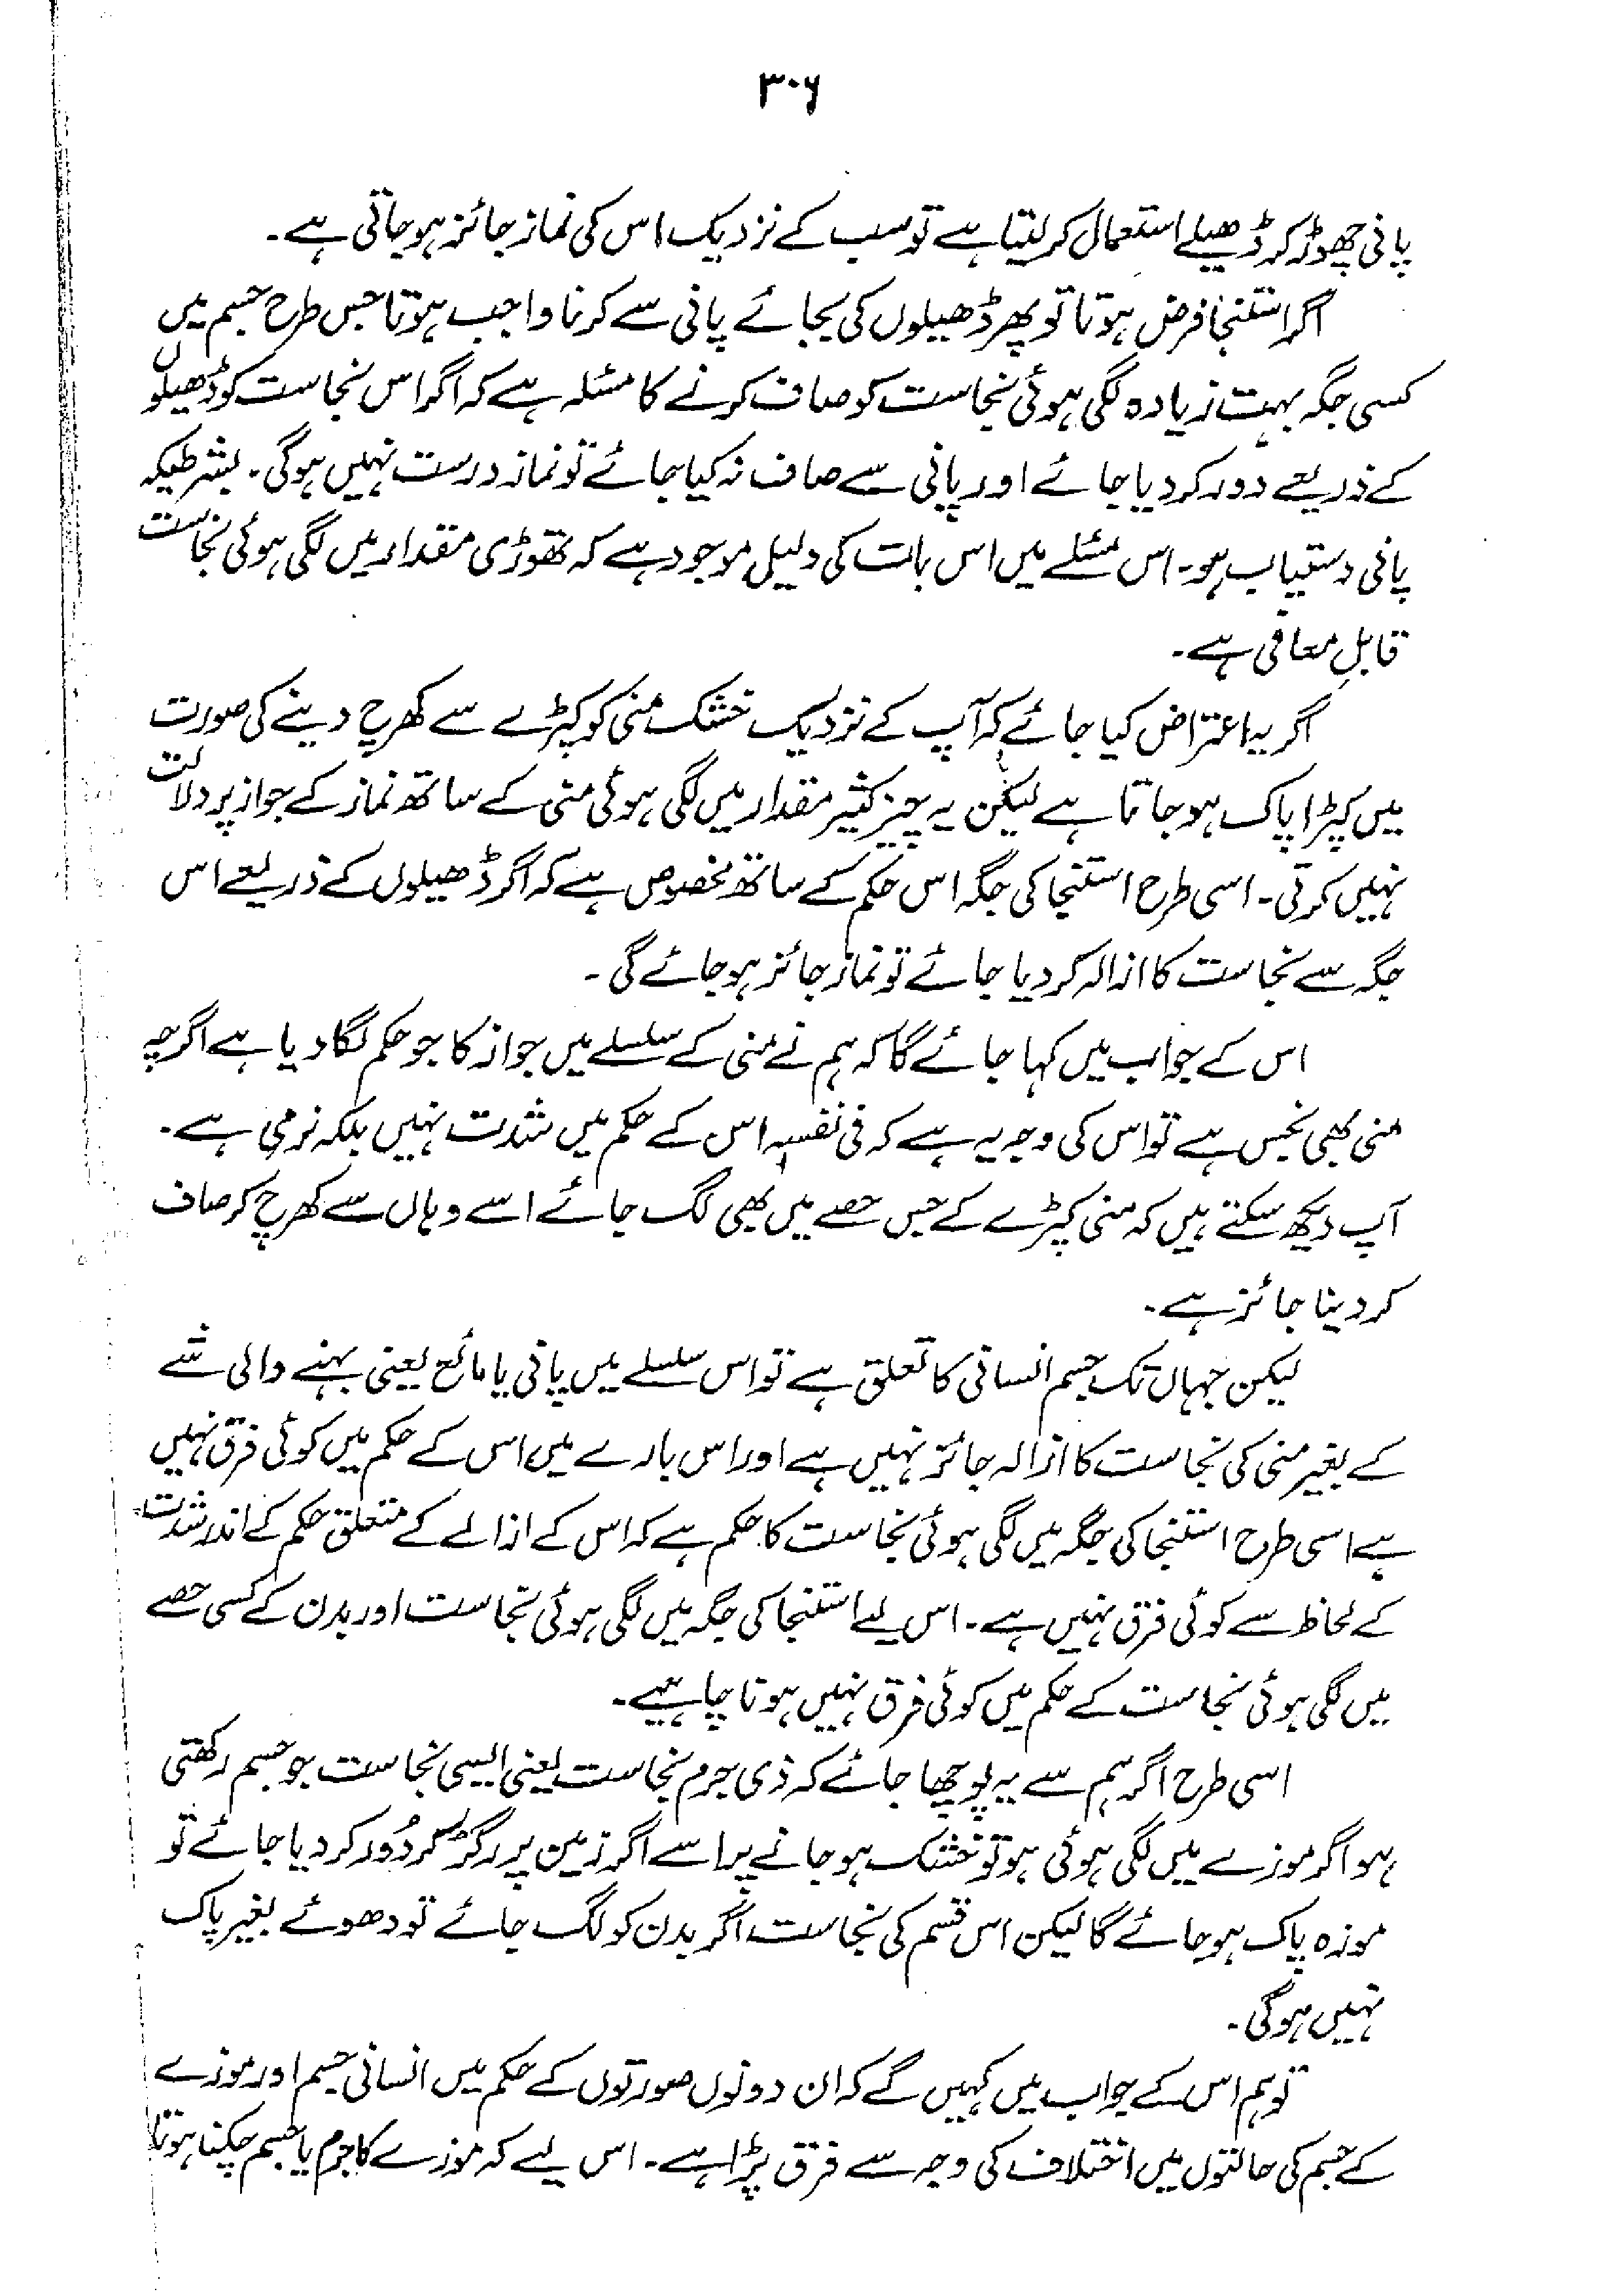 ۳۰۶
پانی چھوڑ کر ڈھیلے استعمال کر لیتا ہے تو سب کے نزدیک اس کی نماز جائز ہو جاتی ہے۔
اگر استنجا فرض ہوتا تو پھر ڈھیلوں کی بجائے پانی سے کرنا واجب ہوتا جس طرح جسم میں
کسی جگہ بہت زیادہ لگی ہوئی نجاست کو صاف کرنے کا مسئلہ ہے کہ اگر اس نجاست کو ڈھیلوں
کے ذریعے دور کر دیا جائے اور پانی سے صاف نہ کیا جائے تو نماز درست نہیں ہوگی۔ بشرطیکہ
پانی دستیاب ہو۔ اس مسئلے میں اس بات کی دلیل موجود ہے کہ تھوڑی مقدار میں لگی ہوئی نجاست
قابلِ معافی ہے۔
اگر یہ اعتراض کیا جائے کہ آپ کے نزدیک خشک منی کو کپڑے سے کھرچ دینے کی صورت
میں کپڑا پاک ہو جاتا ہے لیکن یہ چیز کثیر مقدار میں لگی ہوئی منی کے ساتھ نماز کے جواز پر دلالت
نہیں کرتی۔ اسی طرح استنجا کی جگہ اس حکم کے ساتھ مخصوص ہے کہ اگر ڈھیلوں کے ذریعے اس
جگہ سے نجاست کا ازالہ کر دیا جائے تو نماز جائز ہو جائے گی۔
اس کے جواب میں کہا جائے گا کہ ہم نے منی کے سلسلے میں جواز کا جو حکم لگا دیا ہے اگرچہ
منی بھی نجس ہے تو اس کی وجہ یہ ہے کہ فی نفسہ اس کے حکم میں شدت نہیں بلکہ نرمی ہے۔
آپ دیکھ سکتے ہیں کہ منی کپڑے کے جس حصے میں بھی لگ جائے اسے وہاں سے کھرچ کر صاف
کر دینا جائز ہے۔
لیکن جہاں تک جسم انسانی کا تعلق ہے تو اس سلسلے میں پانی یا مائع یعنی بہنے والی شے
کے بغیر منی کی نجاست کا ازالہ جائز نہیں ہے اور اس بارے میں اس کے حکم میں کوئی فرق نہیں
ہے اسی طرح استنجا کی جگہ میں لگی ہوئی نجاست کا حکم ہے کہ اس کے ازالے کے متعلق حکم کے اندر شدت
کے لحاظ سے کوئی فرق نہیں ہے۔ اس لیے استنجا کی جگہ میں لگی ہوئی نجاست اور بدن کے کسی حصے
میں لگی ہوئی نجاست کے حکم میں کوئی فرق نہیں ہونا چاہیے۔
اسی طرح اگر ہم سے یہ پوچھا جائے کہ ذی جرم نجاست یعنی ایسی نجاست جو جسم رکھتی
ہو اگر موزے میں لگی ہوئی ہو تو خشک ہو جانے پر اسے اگر زمین پر رگڑ کر دُور کر دیا جائے تو
موزہ پاک ہو جائے گا لیکن اس قسم کی نجاست اگر بدن کو لگ جائے تو دھوئے بغیر پاک
نہیں ہوگی۔
تو ہم اس کے جواب میں کہیں گے کہ ان دونوں صورتوں کے حکم میں انسانی جسم اور موزے
کے جسم کی حالتوں میں اختلاف کی وجہ سے فرق پڑا ہے۔ اس لیے کہ موزے کا جرم یا جسم چکنا ہوتا